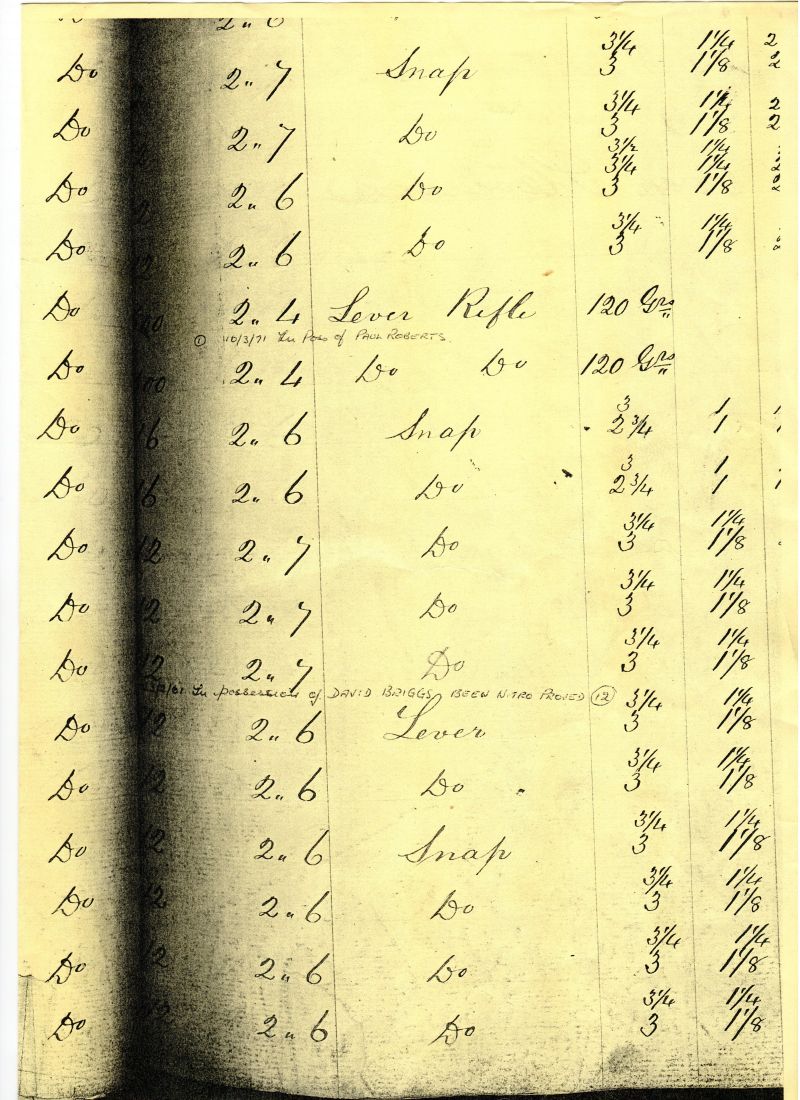 2.. 6
3 1/4 1 1/4 2
Do 2.. 7 Snap 3 1 1/8 2
3 1/4 1 1/4 2
Do 2.. 7 Do 3 1 1/8 2
3 1/2 1 1/4
3 1/4 1 1/4
Do 2.. 6 Do 3 1 1/8
3 1/4 1 1/4
Do 12 2.. 6 Do 3 1 1/8
Do 2.. 4 Lever Rifle 120 Grs
① 10/3/71 In Poss of PAUL ROBERTS.
Do 2.. 4 Do Do 120 Grs
3 1
Do 16 2.. 6 Snap 2 3/4 1
3 1
Do 16 2.. 6 Do 2 3/4 1
3 1/4 1 1/4
Do 12 2.. 7 Do 3 1 1/8
3 1/4 1 1/4
Do 12 2.. 7 Do 3 1 1/8
3 1/4 1 1/4
Do 12 2.. 7 Do 3 1 1/8
In possession of DAVID BRIGGS, BEEN NITRO PROVED ⑫
3 1/4 1 1/4
Do 12 2.. 6 Lever 3 1 1/8
3 1/4 1 1/4
Do 12 2.. 6 Do 3 1 1/8
3 1/4 1 1/4
Do 12 2.. 6 Snap 3 1 1/8
3 1/4 1 1/4
Do 12 2.. 6 Do 3 1 1/8
3 1/4 1 1/4
Do 12 2.. 6 Do 3 1 1/8
3 1/4 1 1/4
Do 2.. 6 Do 3 1 1/8